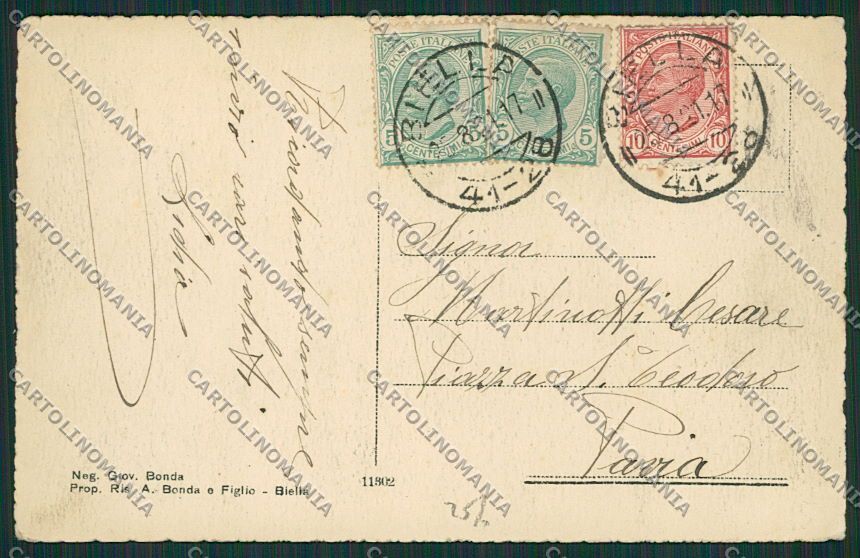 POSTE ITALIANE
5
CENTESIMI
POSTE ITALIANE
5
CENTESIMI
POSTE ITALIANE
10 CENTESIMI 10
BIELLA
41-28
BIELLA
41-28
Ricordando sempre
invio cari saluti.
Lidia
Signor
Martinotti Cesare
Piazza S. Teodoro
Pavia
Neg. Giov. Bonda
Prop. Ris. A. Bonda e Figlio - Biella
11302
CARTOLINOMANIA